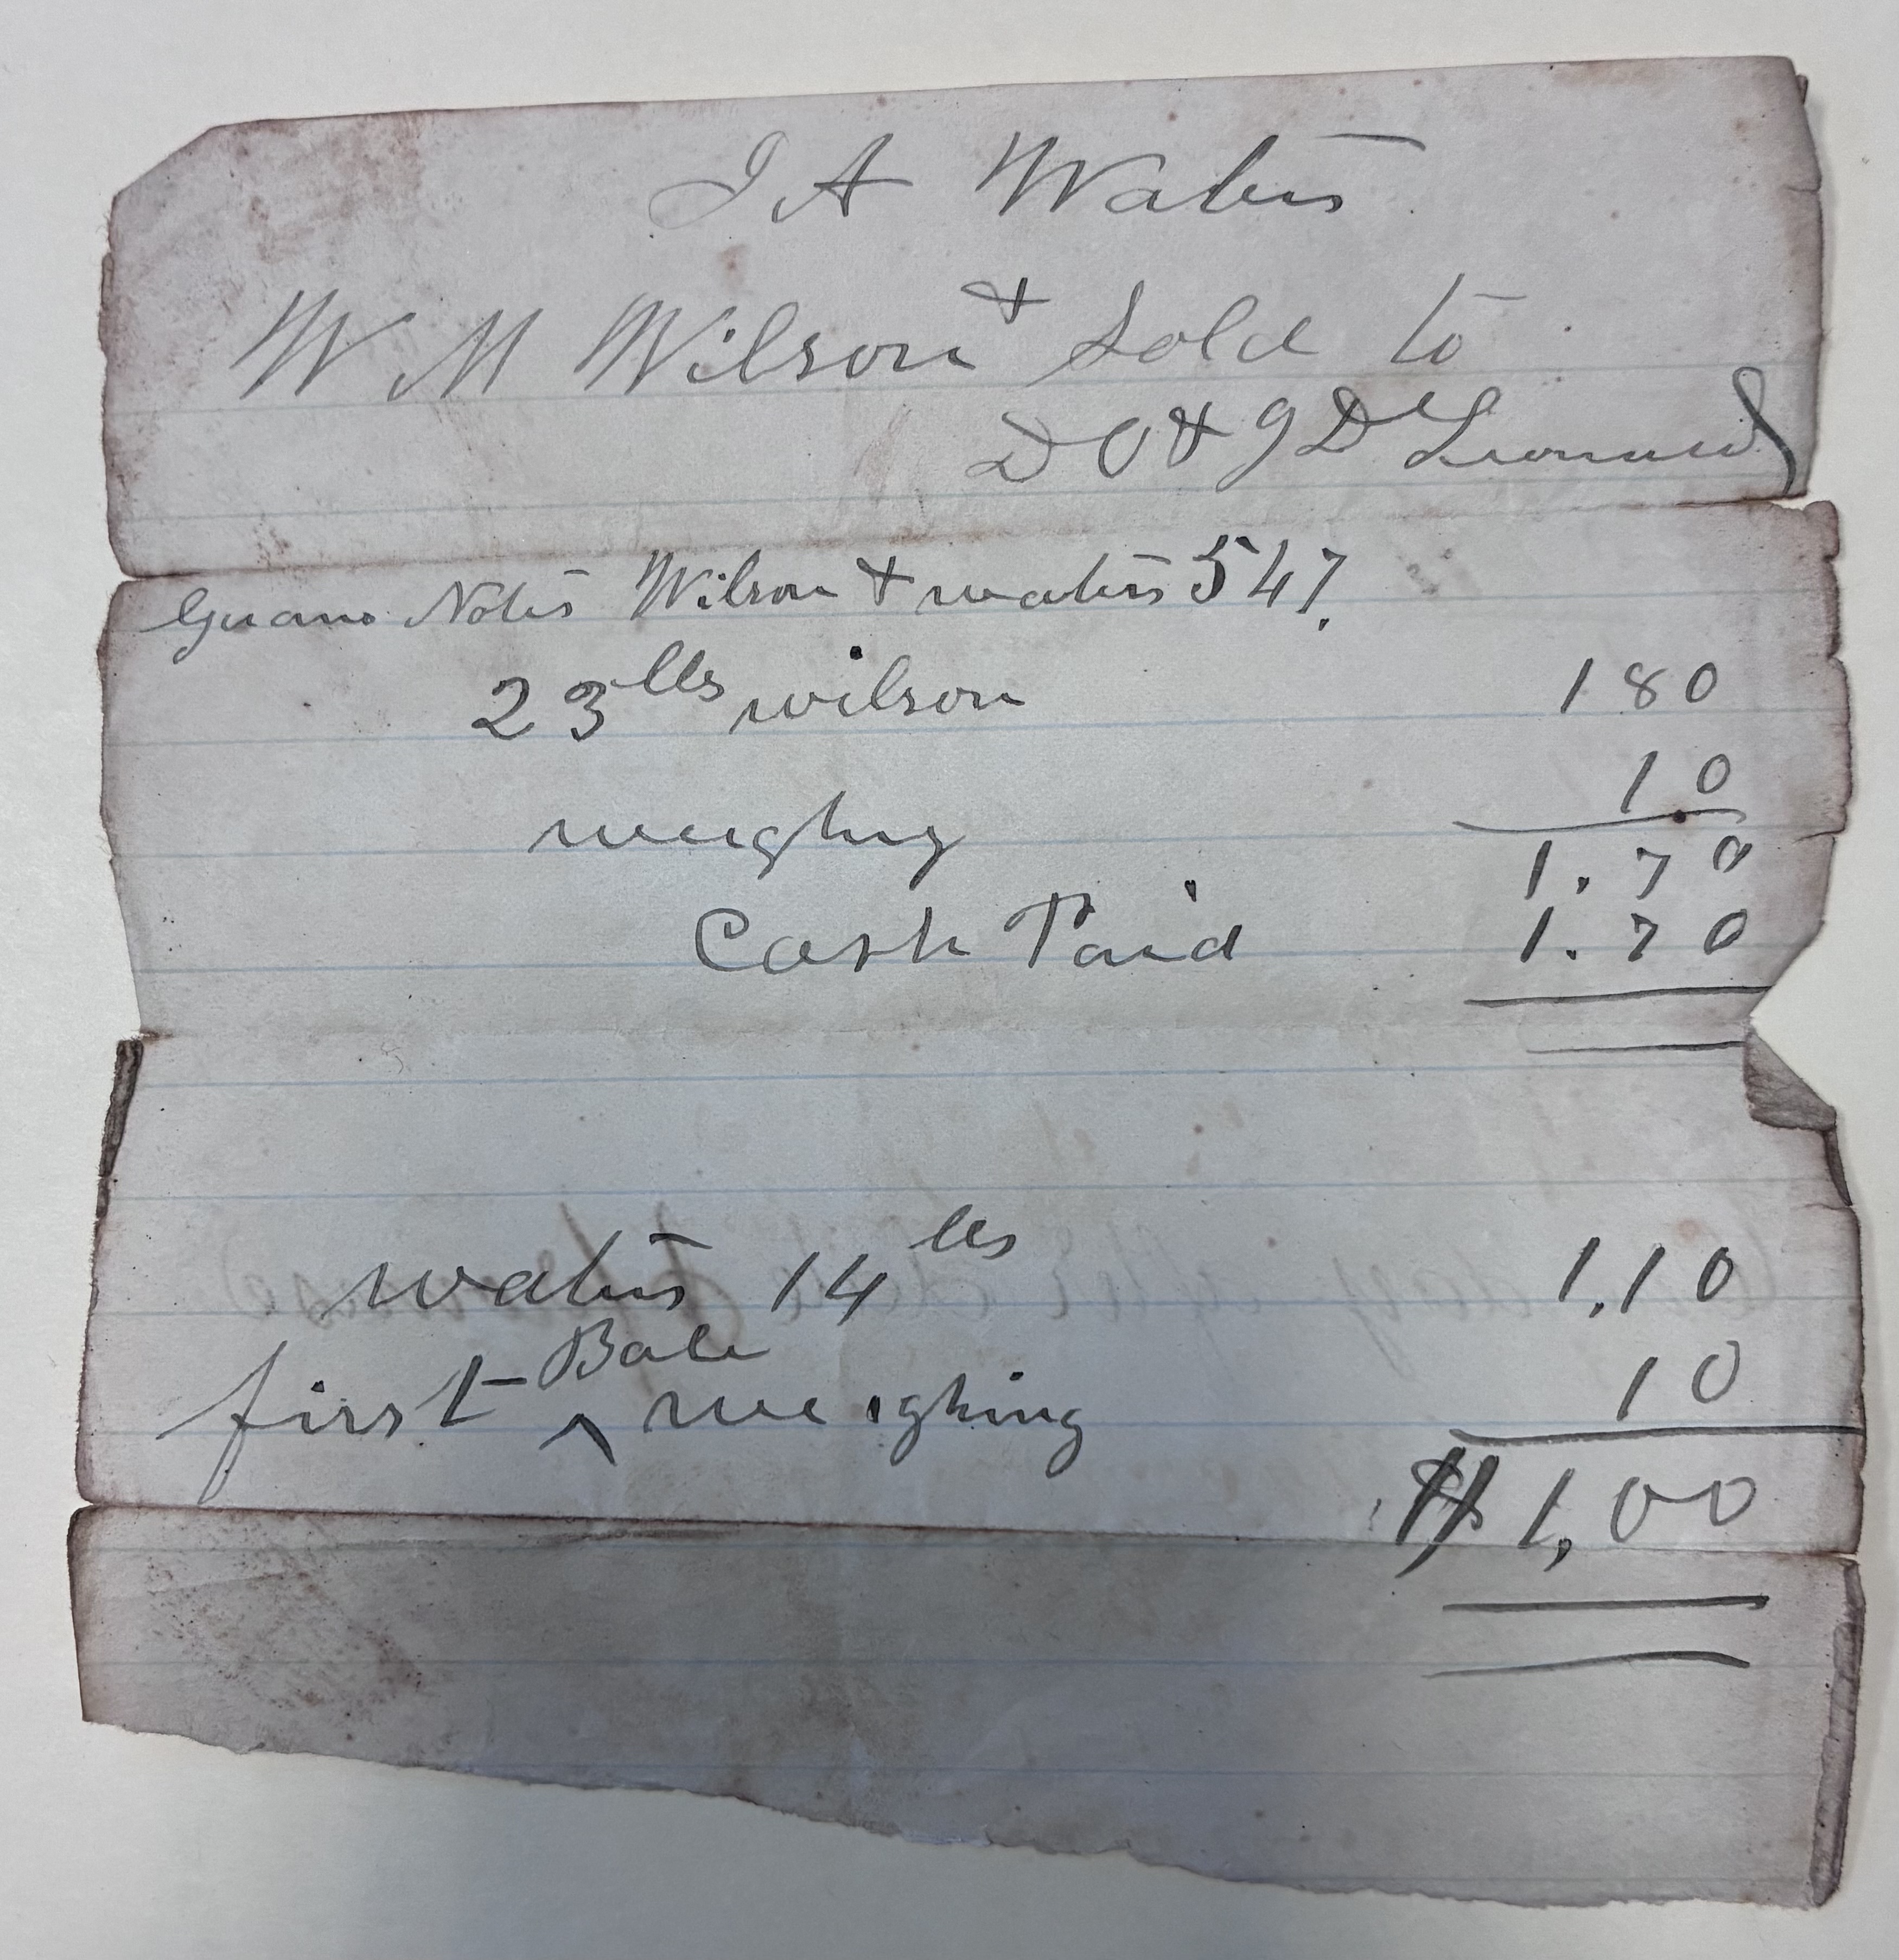 J A Waters
W M Wilson & Sold to
D O & J D Leonard
Guano Notes Wilson & waters 547.
23 lbs wilson 180
10
weighing
1.70
Cash Paid 1.70
waters 14 lbs 1.10
first Bale weighing 10
$ 1,00